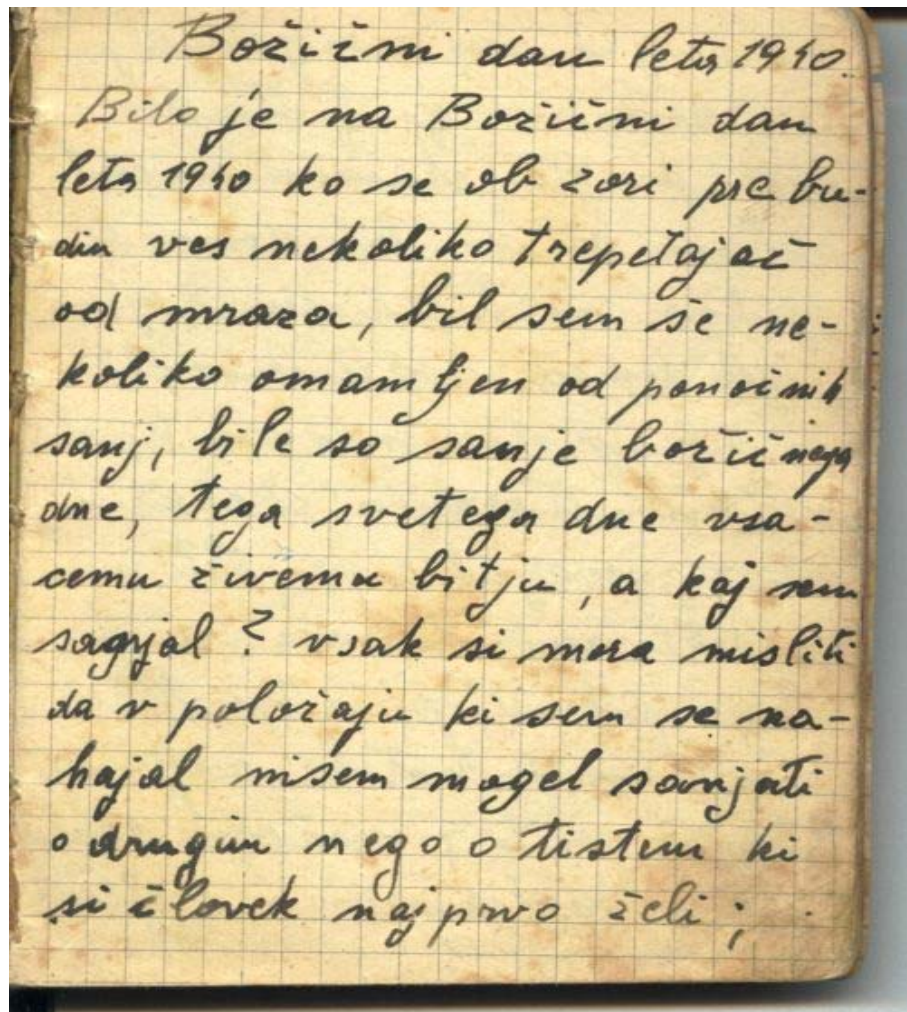 Božični dan leta 1940.
Bilo je na Božični dan
leta 1940 ko se ob zori prebu-
dim ves nekoliko trepetajoč
od mraza, bil sem še ne-
koliko omamljen od ponočnih
sanj, bile so sanje božičnega
dne, tega svetega dne vsa-
cemu živemu bitju, a kaj sem
sanjal? vsak si mora misliti
da v položaju ki sem se na-
hajal nisem mogel sanjati
o drugim nego o tistem ki
si človek najprvo želi;